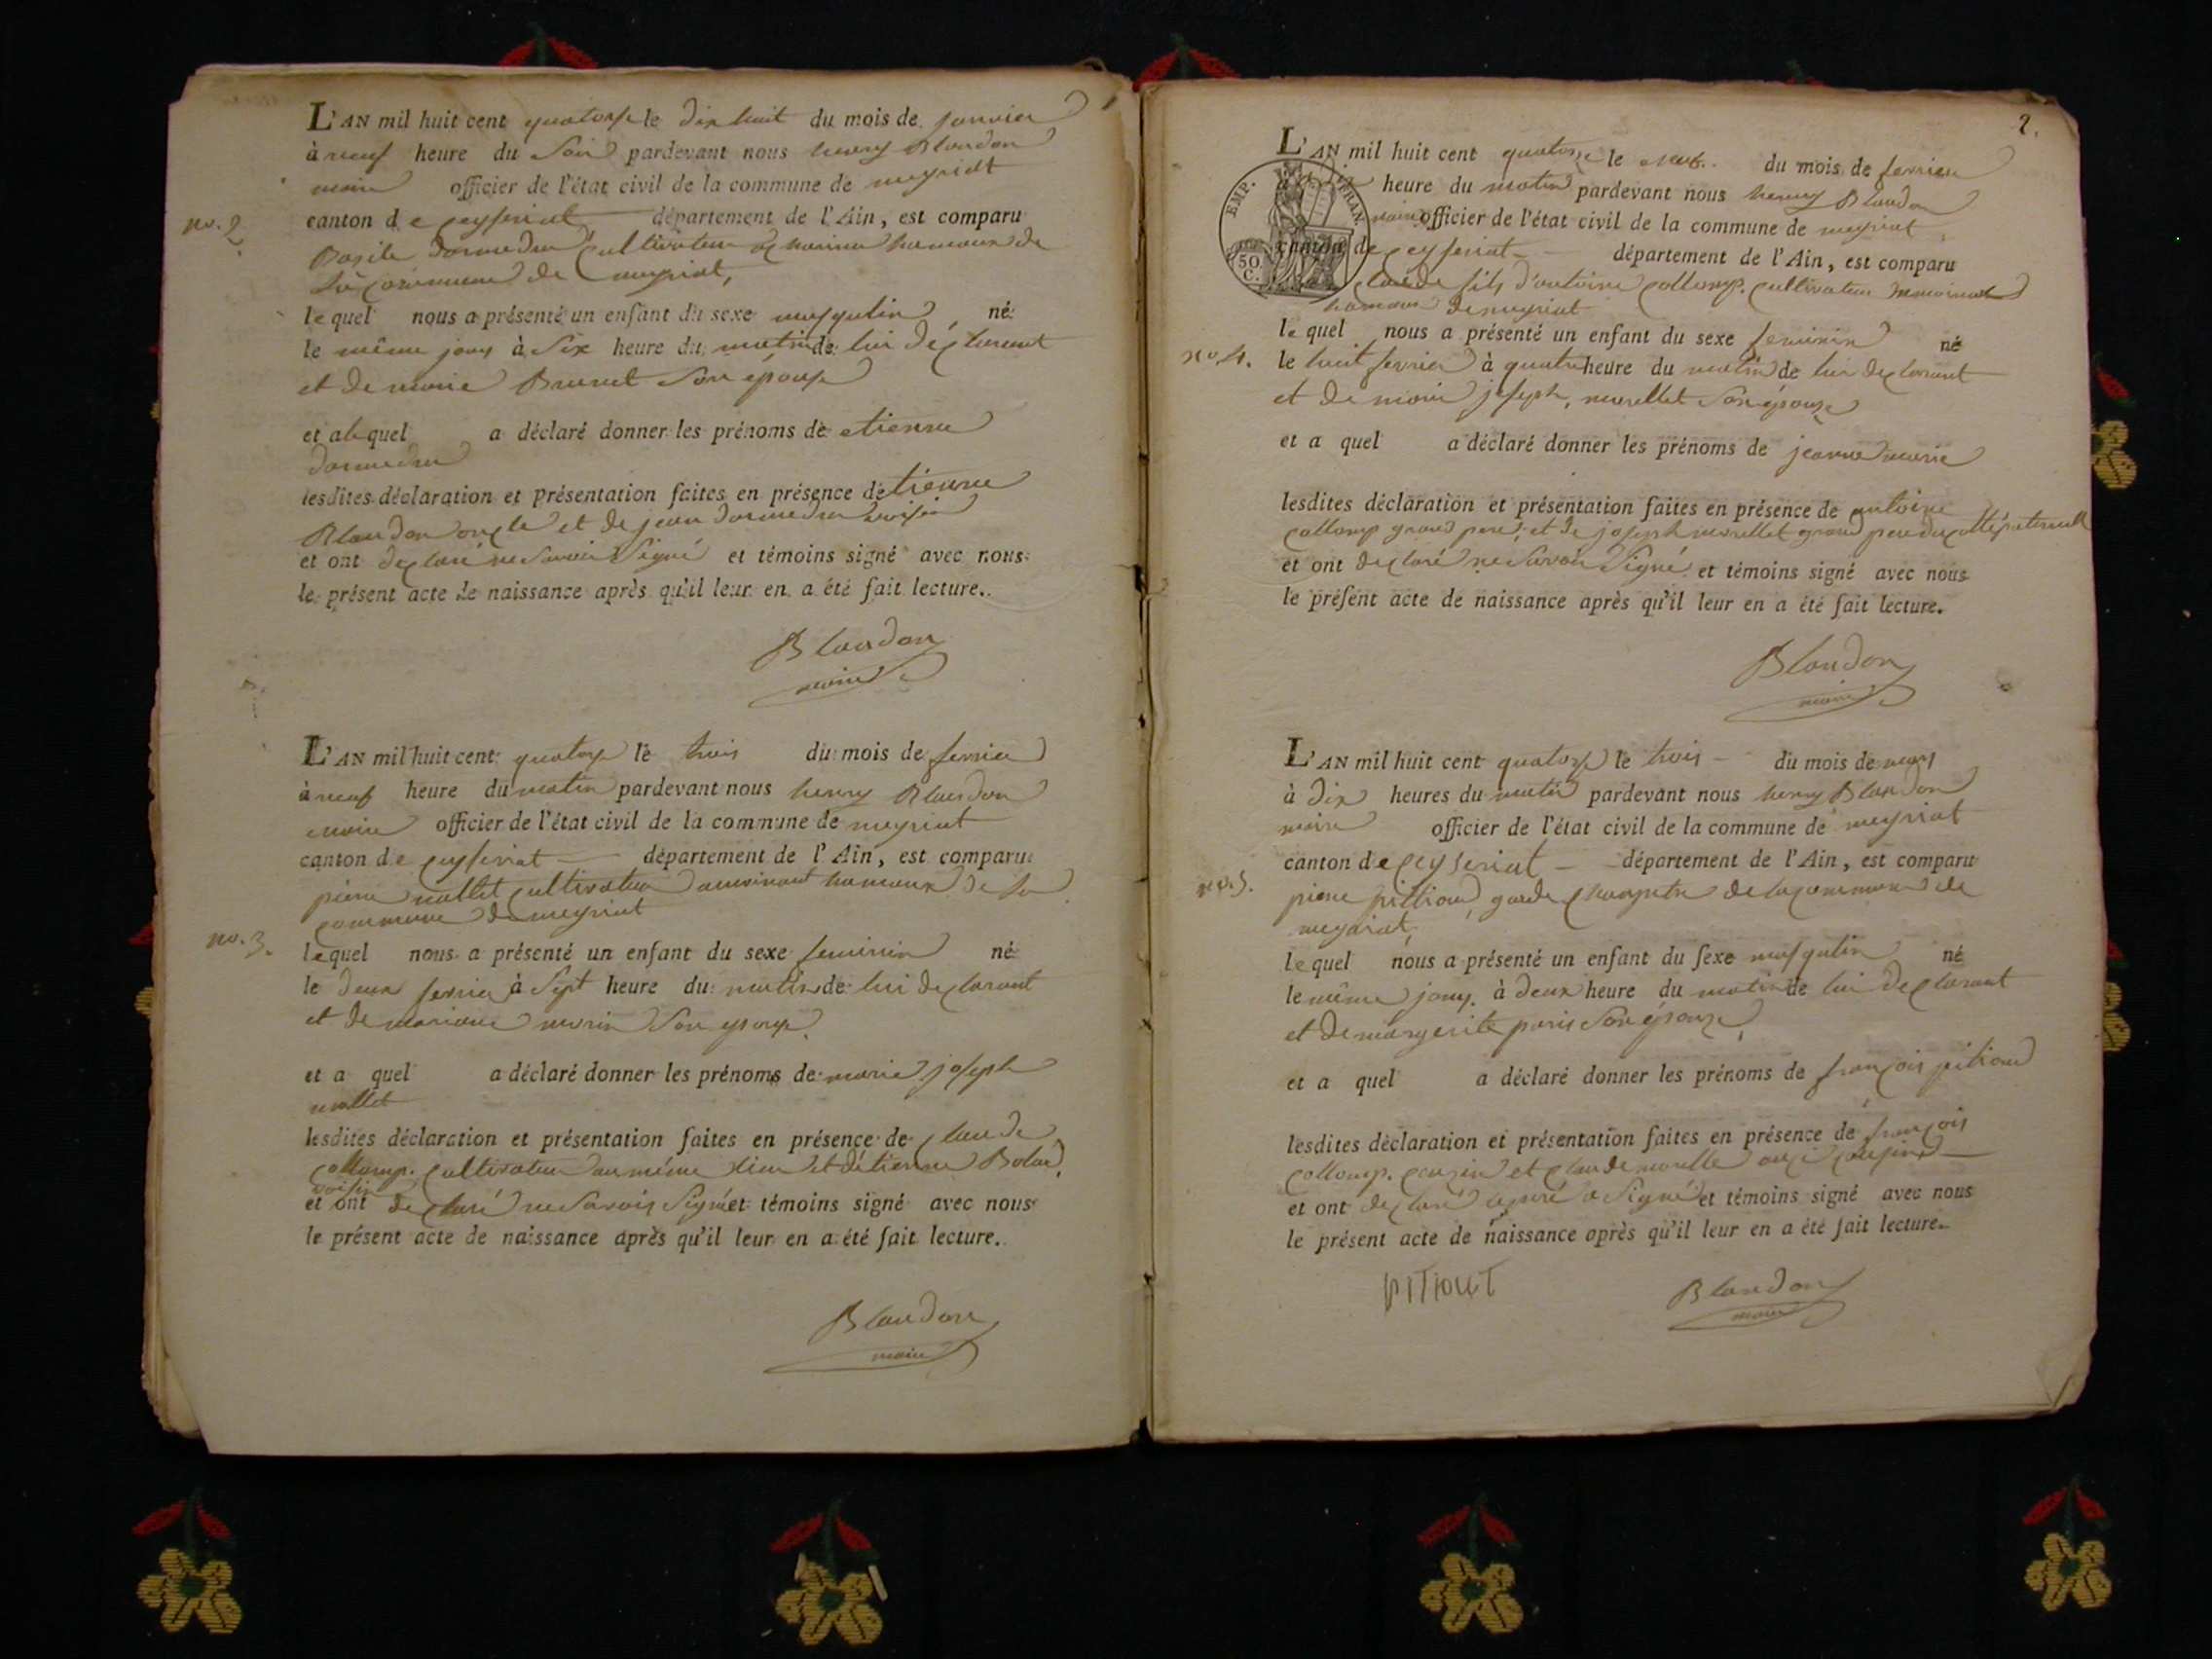 L'AN mil huit cent quatorse le dix huit du mois de janvier
à neuf heure du Soir pardevant nous henry Blandon
maire officier de l'état civil de la commune de meyriat
no. 2 canton de ceyseriat département de l'Ain, est comparu
Basile cultivateur hameaux de
la commune de meyriat,
lequel nous a présenté un enfant du sexe masqulin né
le même jour à Six heure du matin de lui déclarant
et de marie Brunet Son épouse
et alequel a déclaré donner les prénoms de etienne
lesdites déclaration et présentation faites en présence detienne
Blandon oncle et de jean voisin
et ont declaré ne Savoir Signé et témoins signé avec nous
le présent acte de naissance après qu'il leur en a été fait lecture.
Blandon
maire
L'AN mil huit cent quatorse le trois du mois de fevrier
à neuf heure du matin pardevant nous henry Blandon
maire officier de l'état civil de la commune de meyriat
canton de ceyseriat département de l'Ain, est comparu
pierre mallet cultivateur hameaux de la
commune de meyriat
no. 3. lequel nous a présenté un enfant du sexe feminin né
le deux fevrier à Sept heure du matin de lui declarant
et de mariane morin Son epouse.
et a quel a déclaré donner les prénoms de marie joseph
mallet
lesdites déclaration et présentation faites en présence de claude
collomp. cultivateur au même lieu et détienne
voisin
et ont declaré ne Savoir Signé et témoins signé avec nous
le présent acte de naissance après qu'il leur en a été fait lecture.
Blandon
maire
2.
L'AN mil huit cent quatorse le neuf. du mois de fevrier
heure du matin pardevant nous henry Blandon
maire officier de l'état civil de la commune de meyriat
canton de ceyseriat département de l'Ain, est comparu
EMP. FRAN. 50 C.
claude fils d'antoine collomp. cultivateur
hameaux de meyriat
lequel nous a présenté un enfant du sexe feminin né
no. 4. le huit fevrier à quatre heure du matin de lui declarant
et de marie joseph, morellet Son épouse
et a quel a déclaré donner les prénoms de jeanne marie
lesdites déclaration et présentation faites en présence de antoine
collomp grand pere, et de joseph morellet grand pere du
et ont declaré ne Savoir Signé et témoins signé avec nous
le présent acte de naissance après qu'il leur en a été fait lecture.
Blandon
maire
L'AN mil huit cent quatorse le trois du mois de mars
à dix heures du matin pardevant nous henry Blandon
maire officier de l'état civil de la commune de meyriat
canton de ceyseriat département de l'Ain, est comparu
no. 5. pierre pittiou, garde champetre de la commune de
meyriat,
lequel nous a présenté un enfant du sexe masqulin né
le même jour. à deux heure du matin de lui declarant
et de margerite paris Son épouse,
et a quel a déclaré donner les prénoms de françois pitiou
lesdites déclaration et présentation faites en présence de françois
collomp. couzin et claude morelle
et ont declaré Signé et témoins signé avec nous
le présent acte de naissance après qu'il leur en a été fait lecture.
PITIOUT Blandon
maire